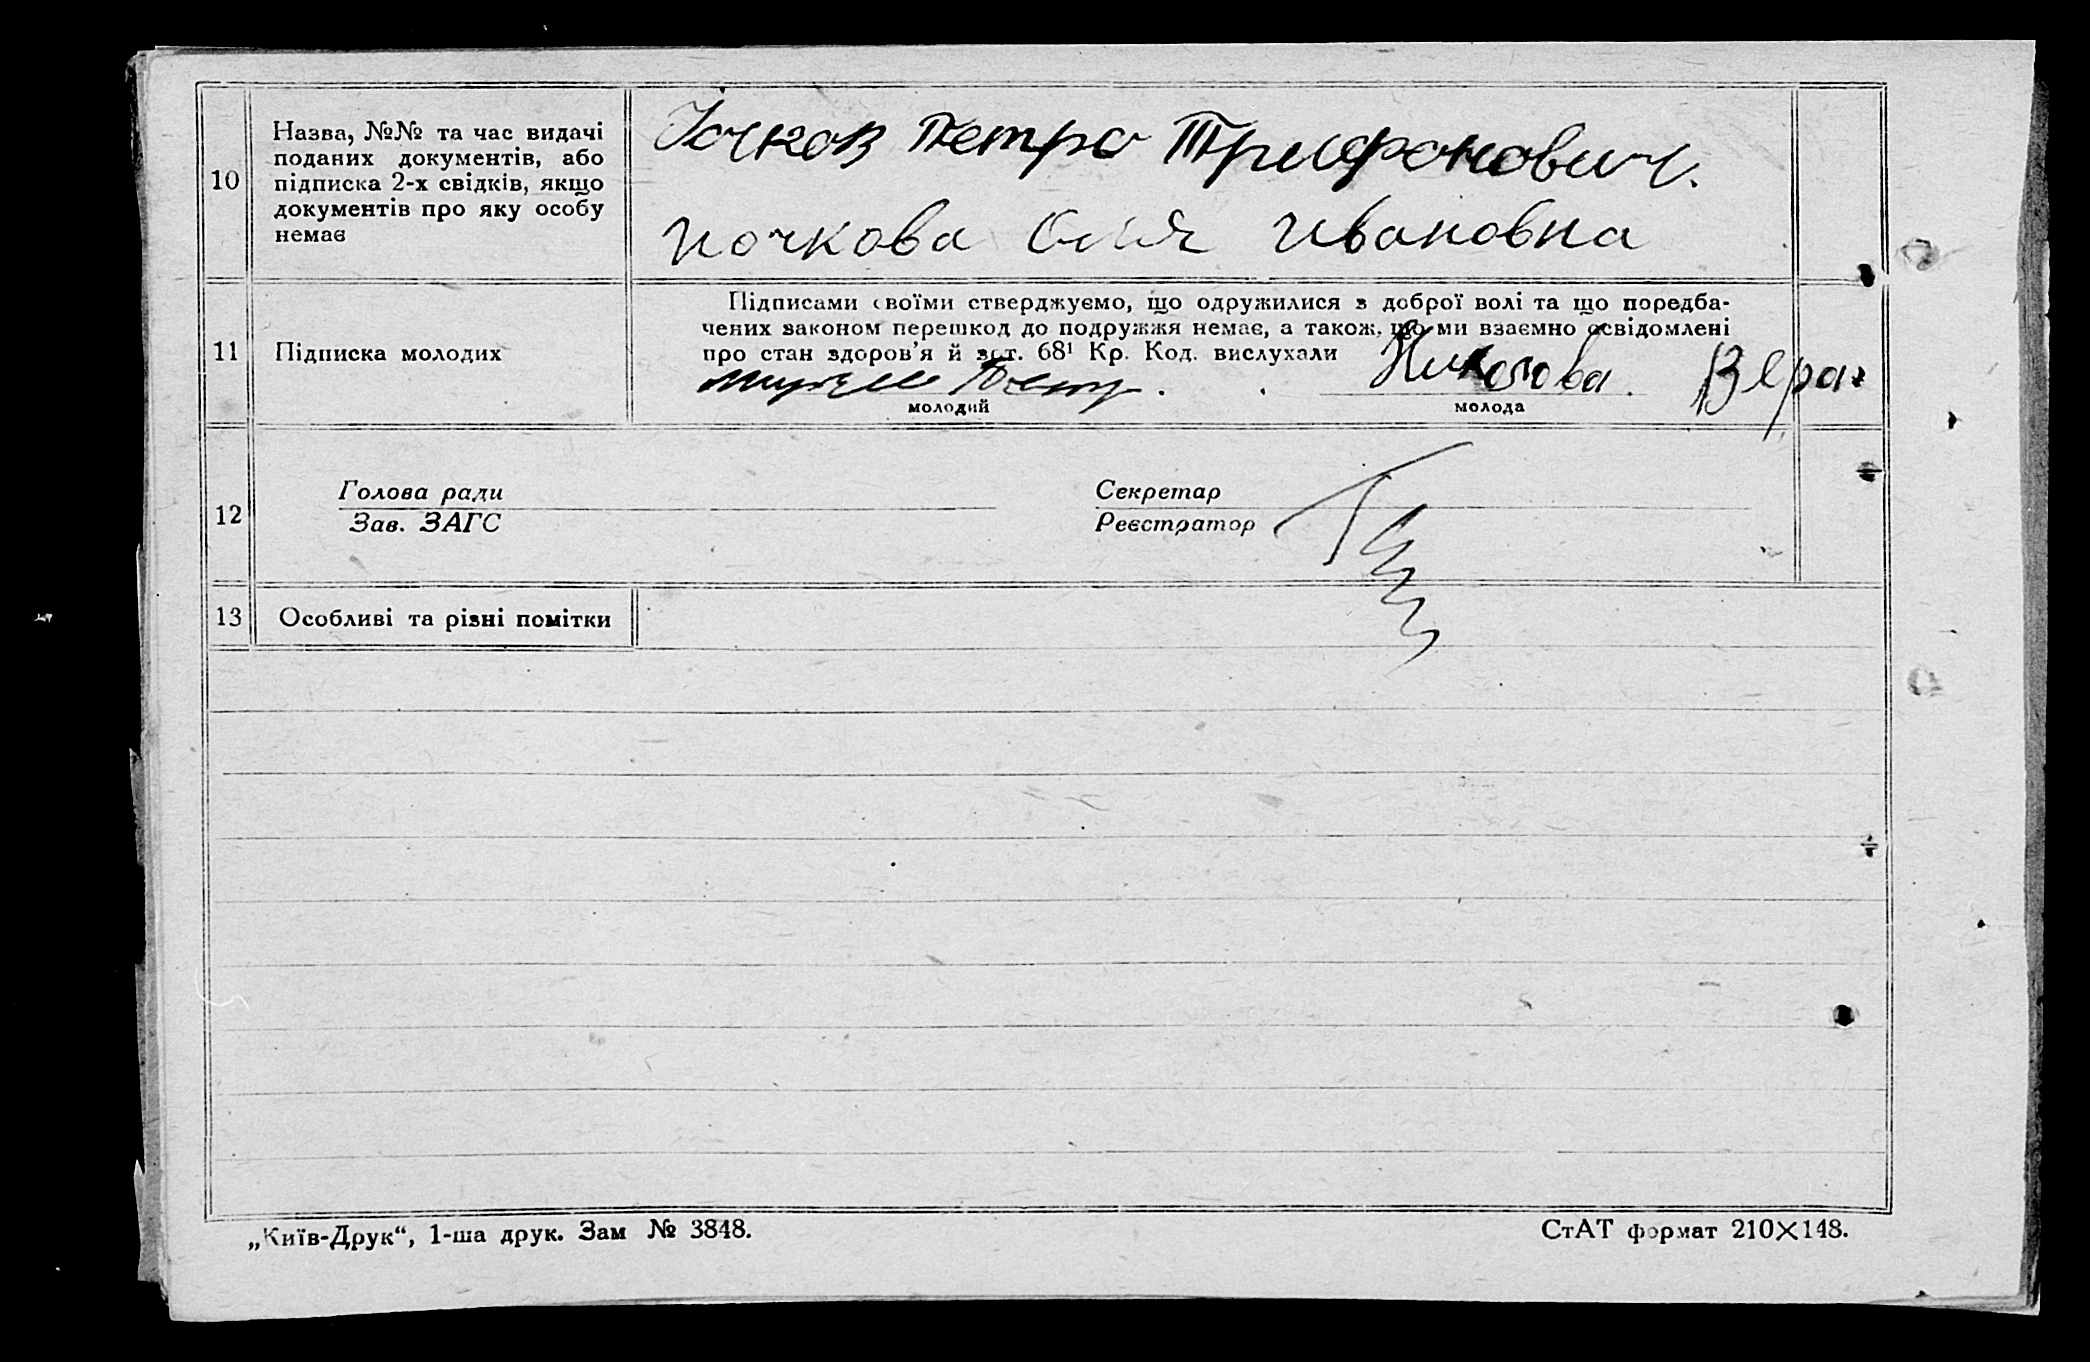 10
Назва, №№ та час видачі
поданих документів, або
підписка 2-х свідків, якщо
документів про яку особу
немає
Іочков Петро Трифонович.
Иочкова Ивановна
11
Підписка молодих
Підписами своїми стверджуємо, що одружилися з доброї волі та що поредба-
чених законом перешкод до подружжя немає, а також, що ми взаємно освідомлені
про стан здоров'я й зст. 68¹ Кр. Код. вислухали
Николова Вера
молодий
молода
12
Голова ради
Зав. ЗАГС
Секретар
Реєстратор
13
Особливі та різні помітки
„Київ-Друк“, 1-ша друк. Зам № 3848.
СтАТ формат 210×148.